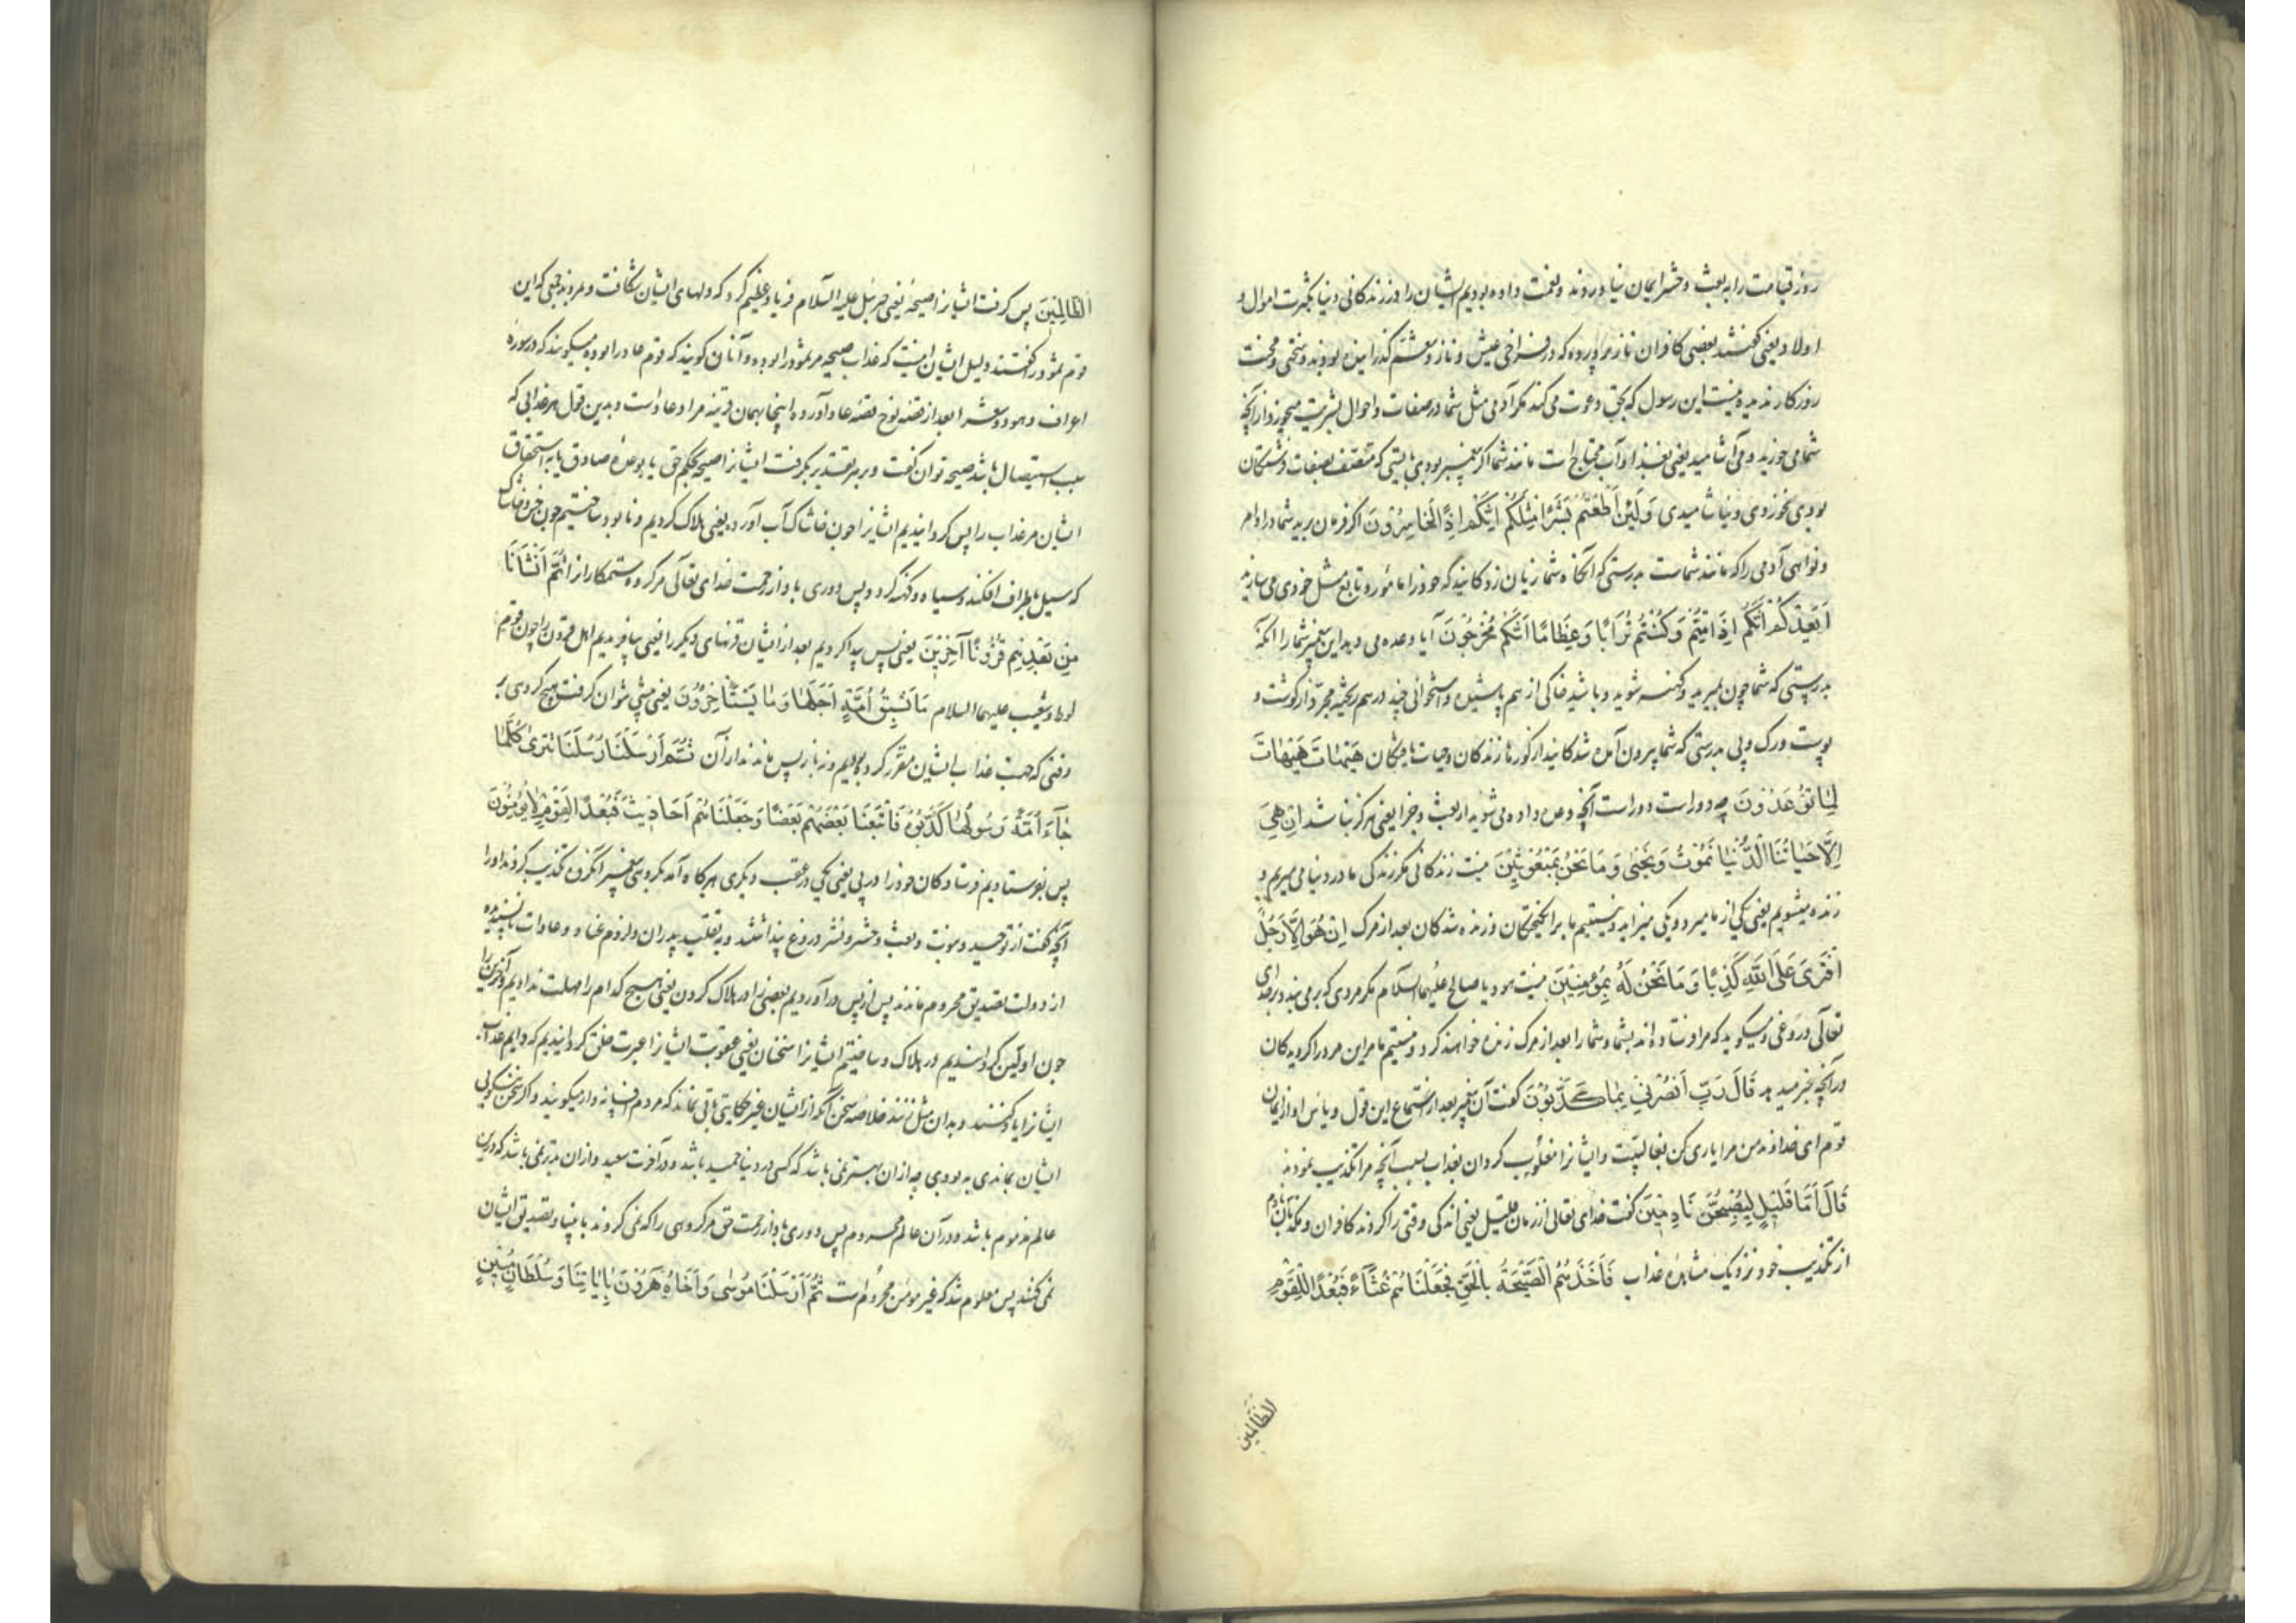 روز قیامت را به بعث و حشر ایمان نیاوردند و نعمت داده بودیم ایشان را در زندکانی دنیا بکثرت اموال و
اولاد یعنی کفتند بعضی کافران ناز پرورده که در فراخی عیش و ناز و تنعم کذرانیده بودند و سختی و محنت
روزکار ندیده نیست این رسول که بحق دعوت می کند مکر آدمی مثل شما در صفات و احوال بشریت میخورد از آنچه
شما می خورید و می آشامید یعنی بغذا و آب محتاج است مانند شما اکر پیغمبر بودی بایستی که متصف بصفات فرشتکان
بودی نخوردی و نیاشامیدی وَلَئِنْ اَطَعْتُمْ بَشَرًا مِثْلَكُمْ اِنَّكُمْ اِذًا لَخَاسِرُونَ اکر فرمان برید شما در اوامر
و نواهی آدمی را که مانند شماست بدرستی که آنکاه شما زیان زدکانید که خود را مامور و تابع مثل خودی می سازید
اَيَعِدُكُمْ اَنَّكُمْ اِذَا مِتُّمْ وَكُنْتُمْ تُرَابًا وَعِظَامًا اَنَّكُمْ مُخْرَجُونَ آیا وعده می دهد این پیغمبر شما را آنکه
بدرستی که شما چون بمیرید و کهنه شوید و باشید خاکی از هم پاشیده و استخوانی چند در هم ریخته مجرد از کوشت و
پوست و رک و پی بدرستی که شما بیرون آمده شدکانید از کورها زندکان و حیات یافتکان هَيْهَاتَ هَيْهَاتَ
لِمَا تُوعَدُونَ چه دور است دور است آنچه وعده داده می شوید از بعث و جزا یعنی هرکز نباشد اِنْ هِيَ
اِلَّا حَيَاتُنَا الدُّنْيَا نَمُوتُ وَنَحْيٰى وَمَا نَحْنُ بِمَبْعُوثِينَ نیست زندکانی مکر زندکی ما در دنیا می میریم و
زنده میشویم یعنی یکی از ما میرد و یکی میزاید و نیستیم ما برانکیختکان و زنده شدکان بعد از مرک اِنْ هُوَ اِلَّا رَجُلٌ
افْتَرٰى عَلَى اللّٰهِ كَذِبًا وَمَا نَحْنُ لَهُ بِمُؤْمِنِينَ نیست هود یا صالح علیهما السلام مکر مردی که بر می بندد بر خدای
تعالی دروغی و میکوید که مرا فرستاده اند بشما و شما را بعد از مرک زنده خواهند کرد و نیستیم ما مر این مرد را کرویدکان
در آنچه خبر میدهد قَالَ رَبِّ انْصُرْنِي بِمَا كَذَّبُونِ کفت آن پیغمبر بعد از استماع این قول و یاس او از ایمان
قوم ای خداوند من مرا یاری کن بغالبیت و ایشانرا مغلوب کردان بعذاب بسبب آنچه مرا تکذیب نمودند
قَالَ اَمَّا قَلِيلٍ لَيُصْبِحُنَّ نَادِمِينَ کفت خدای تعالی از زمان قلیل یعنی اندکی وقتی را کردند کافران و مکذبان نادم
از تکذیب خود نزدیک مشاهده عذاب فَاَخَذَتْهُمُ الصَّيْحَةُ بِالْحَقِّ فَجَعَلْنَاهُمْ غُثَاءً فَبُعْدًا لِلْقَوْمِ
الظالمین
الظَّالِمِينَ پس کرفت ایشانرا صیحه یعنی جبرئیل علیه السلام فریاد عظیم کرد که دلهای ایشان شکافت و مردند جمعی که این
قوم ثمود را کفتند دلیل ایشان اینست که عذاب صیحه مر ثمود را بوده و آنان کویند که قوم عاد را بوده میکویند که در سوره
اعراف و هود و شعرا بعد از قصه نوح قصه عاد آورده اینجا بهمان قرینه مراد عاد است و بدین قول هر عذابی که
سبب استیصال باشد صیحه توان کفت و بر هر تقدیر بکرفت ایشانرا صیحه بحکم حق یا بوعده صادق یا به استحقاق
ایشان مر عذاب را پس کردانیدیم ایشانرا چون خاشاک آب آورده یعنی هلاک کردیم و نابود ساختیم چون خس و خاشاک
که سیل باطراف افکند و سیاه و کهنه کردد پس دوری باد از رحمت خدای تعالی مر کروه ستمکاران را ثُمَّ اَنْشَاْنَا
مِنْ بَعْدِهِمْ قُرُونًا آخَرِينَ یعنی پس پیدا کردیم بعد از ایشان قرنهای دیکر را یعنی بیافریدیم اهل قرون را چون قوم
لوط و شعیب علیهما السلام مَا تَسْبِقُ مِنْ اُمَّةٍ اَجَلَهَا وَمَا يَسْتَاْخِرُونَ یعنی پیشی نتوان کرفت هیچ کروهی بر
وقتی که جهت عذاب ایشان مقرر کرده ایم و نه باز پس مانند از آن ثُمَّ اَرْسَلْنَا رُسُلَنَا تَتْرٰى كُلَّمَا
جَاءَ اُمَّةً رَسُولُهَا كَذَّبُوهُ فَاَتْبَعْنَا بَعْضَهُمْ بَعْضًا وَجَعَلْنَاهُمْ اَحَادِيثَ فَبُعْدًا لِقَوْمٍ لَا يُؤْمِنُونَ
پس بفرستادیم فرستادکان خود را در پی یعنی یکی در عقب دیکری هرکاه آمد بکروهی پیغمبر آنکروه تکذیب کردند او را
آنچه کفت از توحید و نبوت و بعث و حشر و نشر دروغ پنداشتند و به تقلید پدران و لزوم عناد و عادات ناپسندیده
از دولت تصدیق محروم ماندند پس از پس در آوردیم بعضی را در هلاک کردن یعنی هیچ کدام را مهلت ندادیم و آخرین را
چون اولین کردانیدیم در هلاک و ساختیم ایشانرا سخنان یعنی عقوبت ایشانرا عبرت خلق کردانیدیم که دایم عذاب
ایشانرا یاد کنند و بدان مثل زنند خلاصه سخن آنکه از ایشان غیر حکایتی باقی نماند که مردم افسانه وار میکویند و اکر سخن نیکویی
ایشان بماندی به بودی چه از آن بهتر نمی باشد که کسی در دنیا حمید باشد و در آخرت سعید و از آن بدتر نمی باشد که درین
عالم مذموم باشد و در آن عالم محروم پس دوری باد از رحمت حق مر کروهی را که نمی کروند بانبیا و تصدیق ایشان
نمی کنند پس معلوم شد که غیر مومن محروم است ثُمَّ اَرْسَلْنَا مُوسٰى وَاَخَاهُ هٰرُونَ بِاٰيَاتِنَا وَسُلْطَانٍ مُبِينٍ